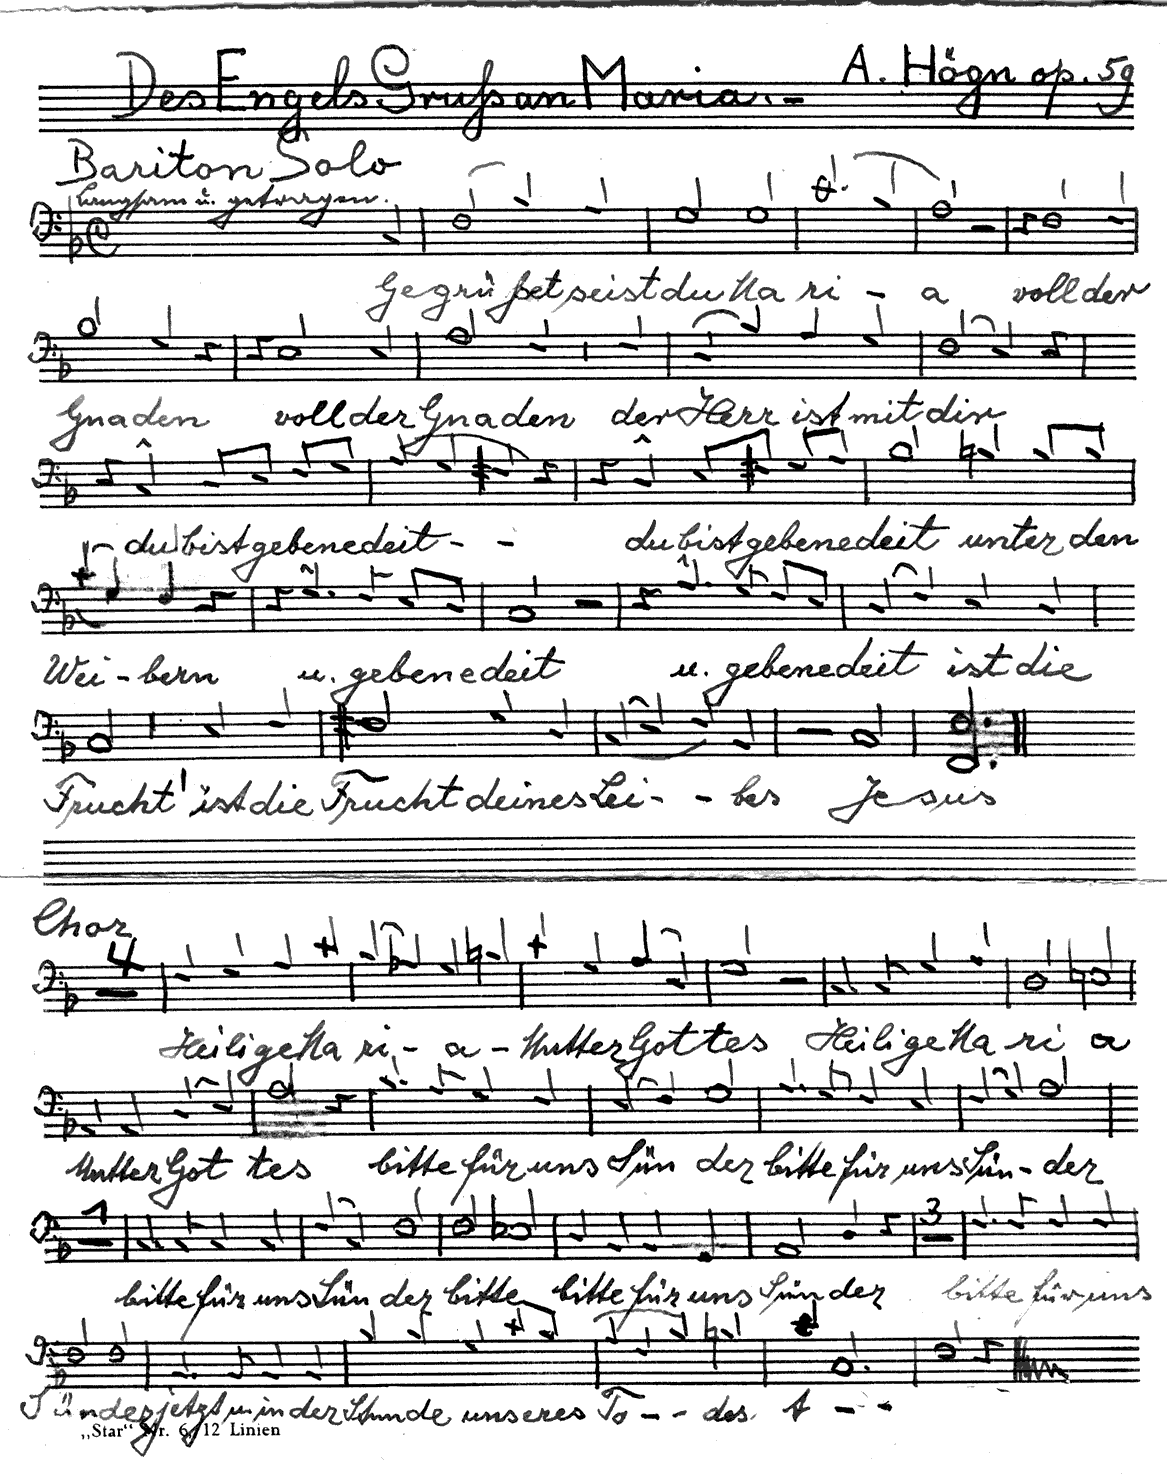 Des Engels Gruß an Maria.- A. Högn op. 59
Bariton Solo
Langsam u. getragen.
Gegrüßet seist du Ma ri - a voll der
Gnaden voll der Gnaden der Herr ist mit dir
du bist gebenedeit - - du bist gebenedeit unter den
Wei - bern u. gebenedeit u. gebenedeit ist die
Frucht ist die Frucht deines Lei - - bes Je sus
Chor
4
Heilige Ma ri - a - Mutter Gottes Heilige Ma ri a
Mutter Got tes bitte für uns Sün der bitte für uns Sün - der
1 3
bitte für uns Sün der bitte bitte für uns Sün der bitte für uns
Sünder jetzt u. in der Stunde unseres To - - des. A - -
„Star“ Nr. 6, 12 Linien